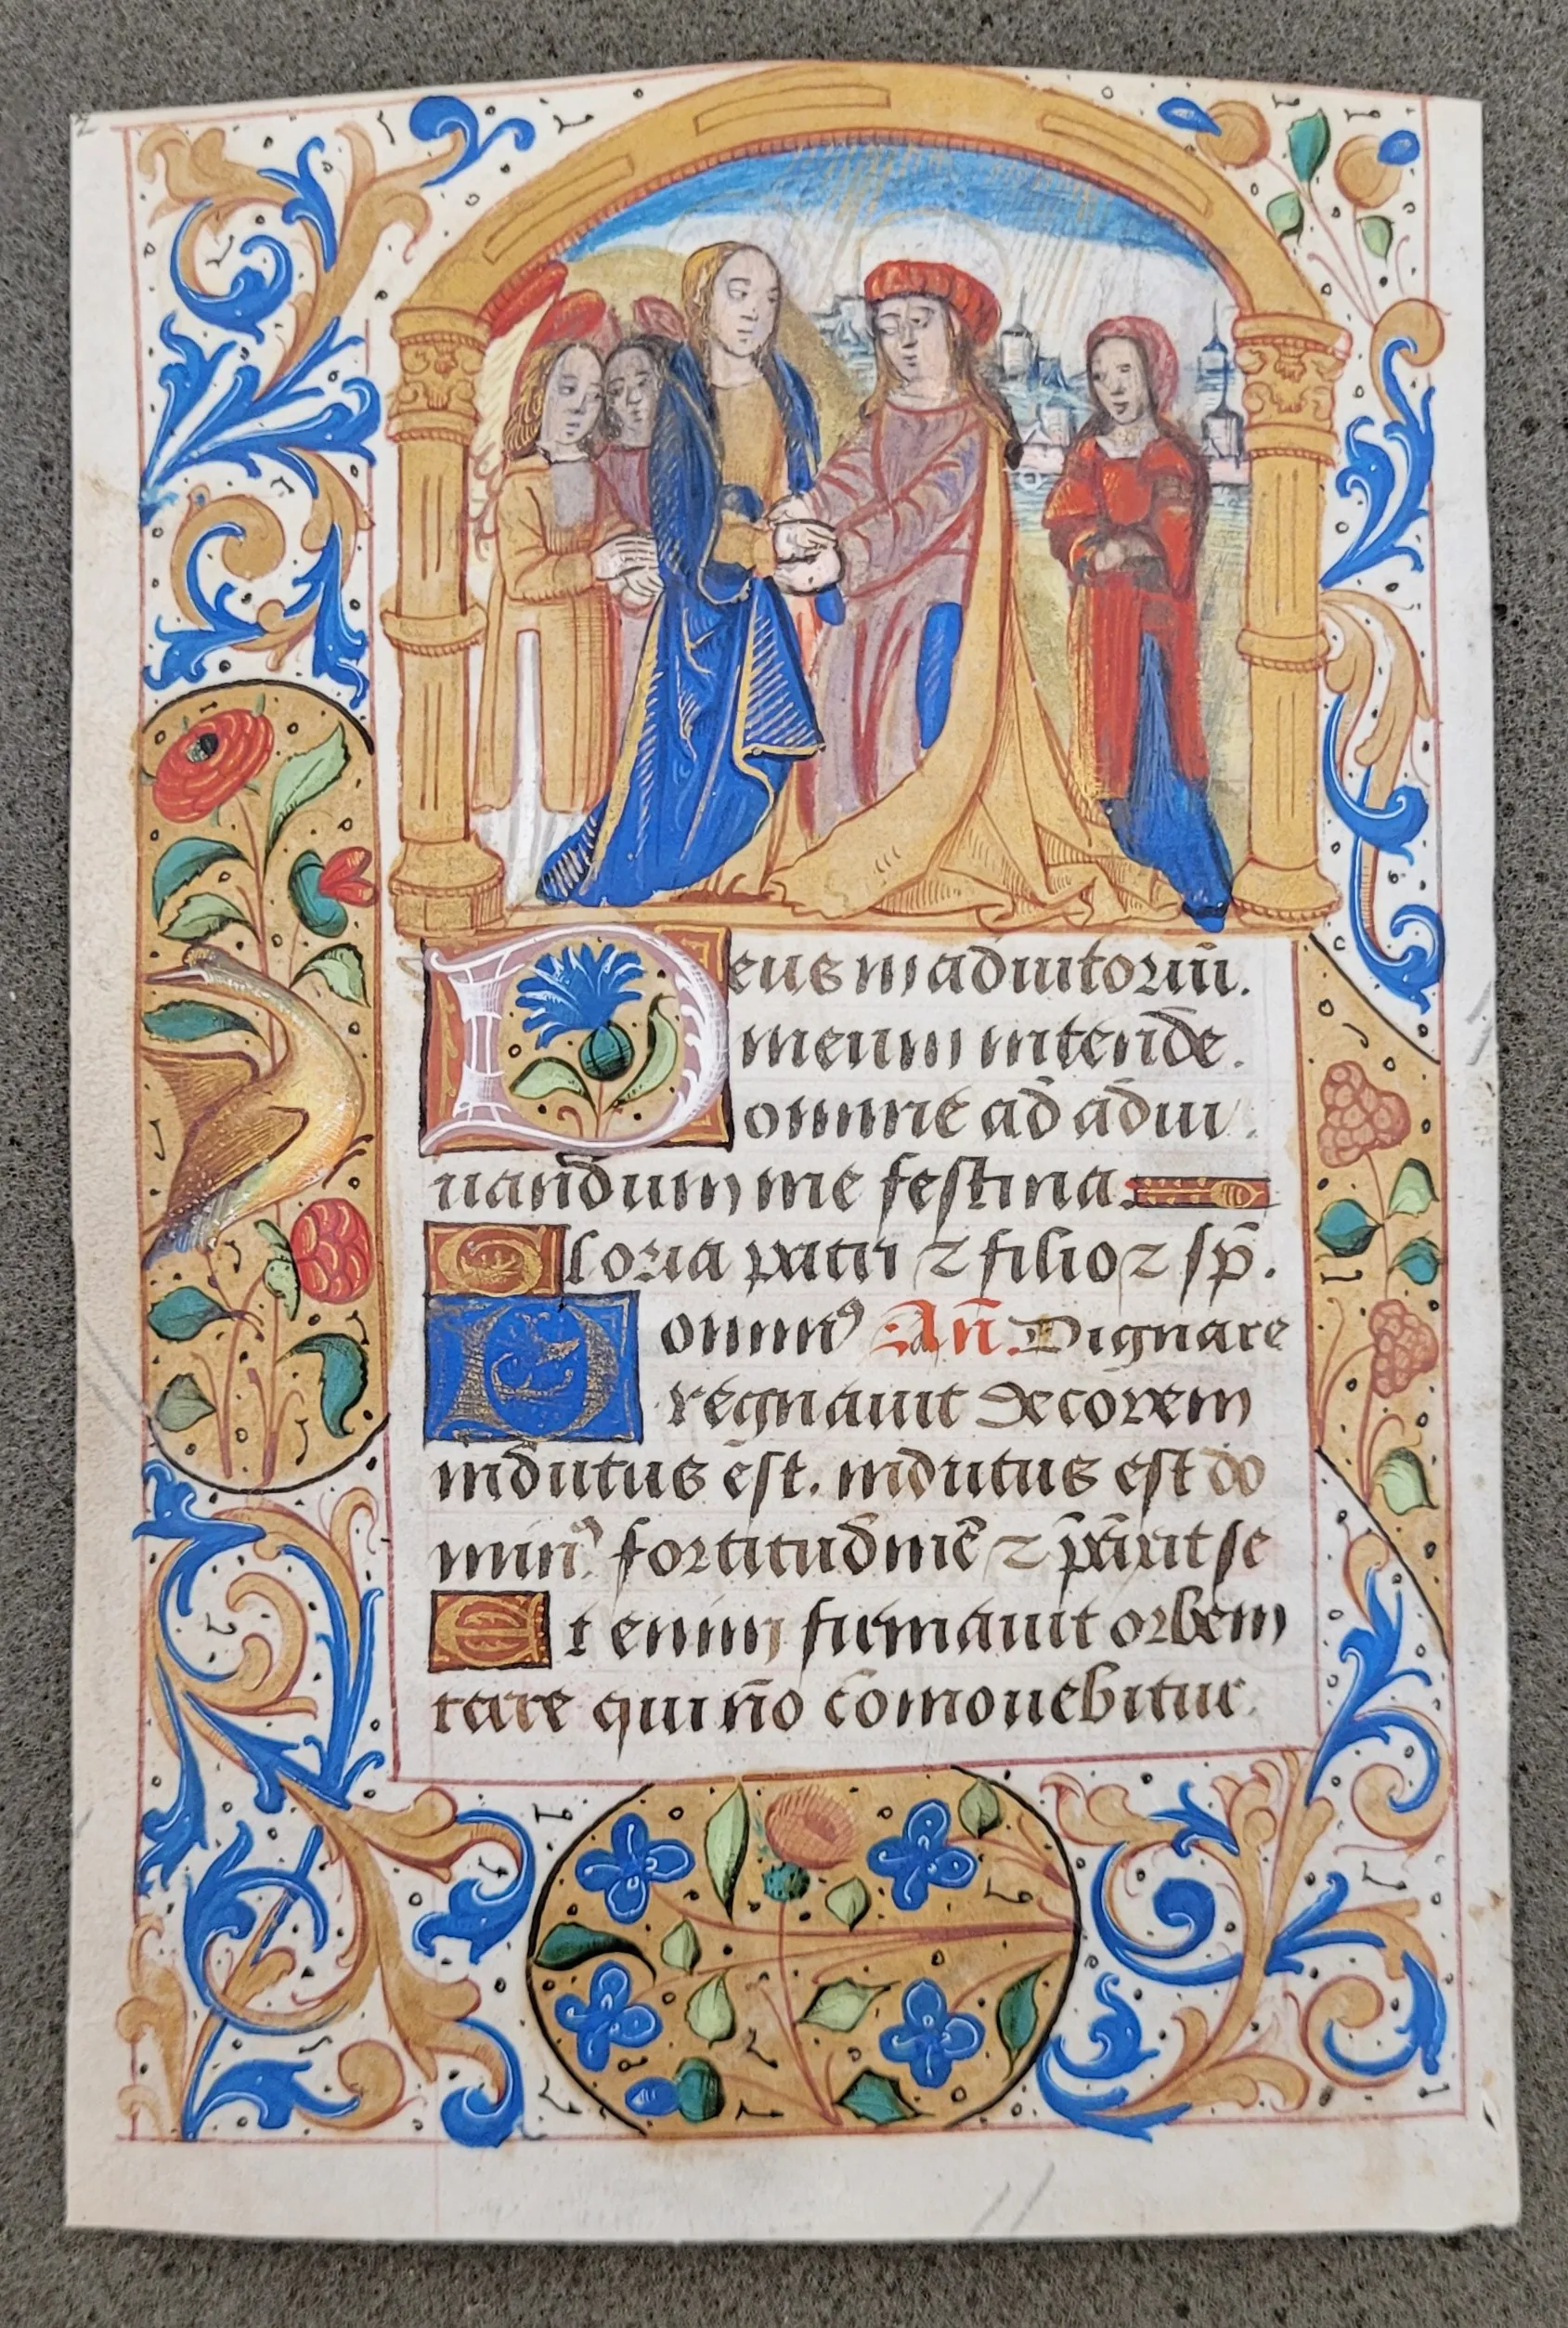 Deus in adiutoriū.
meum intende.
Domine ad adiu
uandum me festina.
Gloria patri ⁊ filio ⁊ sp̄.
Dominꝰ Añ. Dignare
regnauit decorem
indutus est. indutus est do
minꝰ fortitudinē ⁊ p̄cīxit se
Et enim firmauit orbem
terre qui nō cōmouebitur